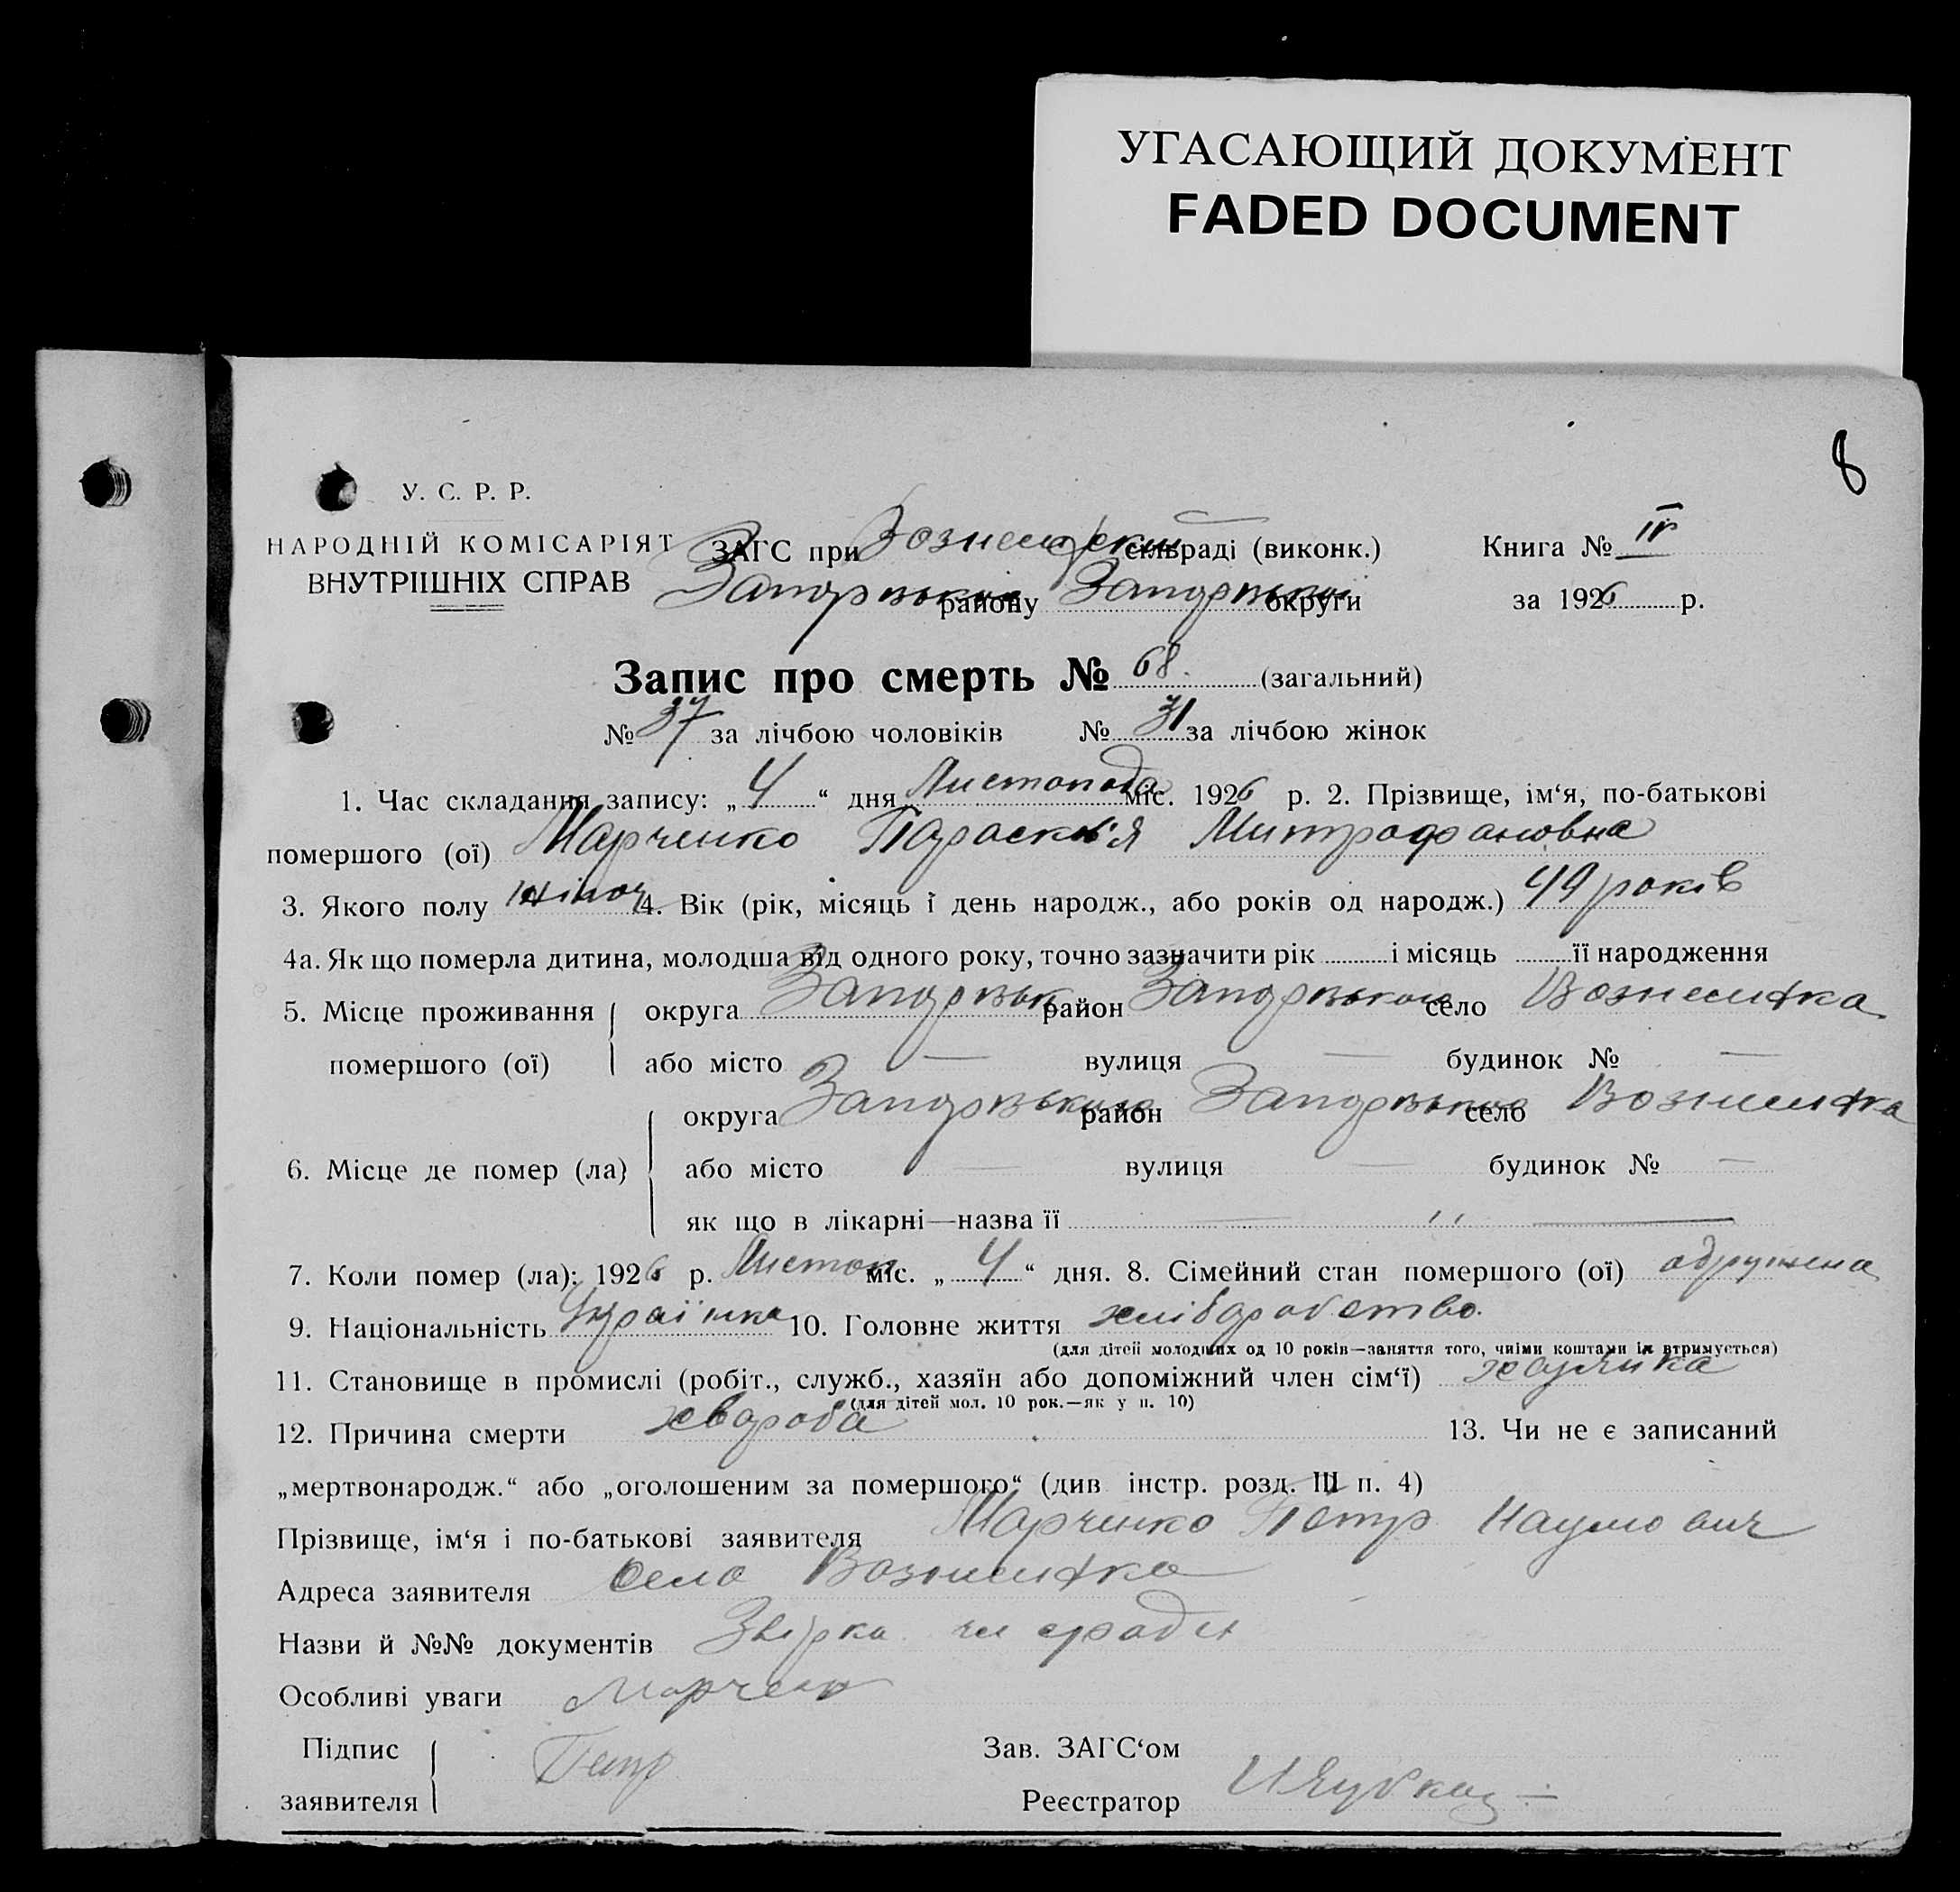 УГАСАЮЩИЙ ДОКУМЕНТ
FADED DOCUMENT
8
У. С. Р. Р.
НАРОДНІЙ КОМІСАРІЯТ
ВНУТРІШНІХ СПРАВ
ЗАГС при сільраді (виконк.) Книга № IV
району округи за 1926 р.
Запис про смерть № 68. (загальний)
№ 37 за лічбою чоловіків № 31 за лічбою жінок
1. Час складання запису: „ 4 “ дня Листопада міс. 1926 р. 2. Прізвище, ім‘я, по-батькові
помершого (ої) Марченко Параскв'я Митрофановна
3. Якого полу жіноч 4. Вік (рік, місяць ї день народж., або років од народж.) 49 років
4а. Як що померла дитина, молодша від одного року, точно зазначити рік і місяць її народження
5. Місце проживання округа Запорізьк район село Вознесенка
помершого (ої) або місто — вулиця — будинок № —
округа район село Вознесенка
6. Місце де помер (ла) або місто — вулиця — будинок № —
як що в лікарні—назва її — ,, —
7. Коли помер (ла): 1926 р. Листоп міс. „ 4 “ дня. 8. Сімейний стан помершого (ої) одружена
9. Національність Українка 10. Головне життя хліборобство.
(для дітей молодших од 10 років—заняття того, чиїми коштами їх втримується)
11. Становище в промислі (робіт., служб., хазяїн або допоміжний член сім‘ї)
(для дітей мол. 10 рок.—як у п. 10)
12. Причина смерти хвороба 13. Чи не є записаний
„мертвонародж.“ або „оголошеним за помершого“ (див інстр. розд. III п. 4)
Прізвище, ім‘я і по-батькові заявителя Марченко Петр Наумович
Адреса заявителя село Вознесенка
Назви й №№ документів
Особливі уваги
Підпис Петр Зав. ЗАГС‘ом
заявителя Реєстратор